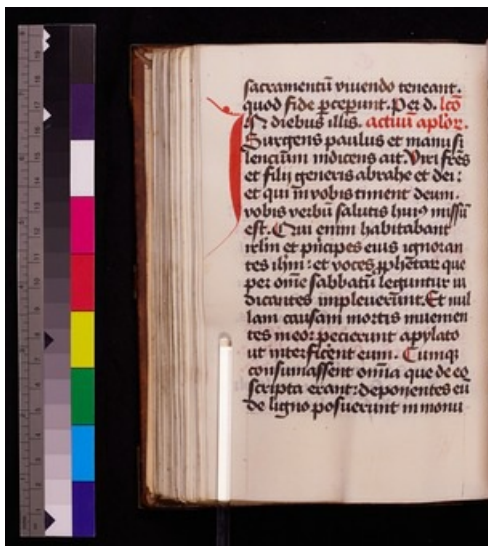 sacramentū viuendo teneant.
quod fide ꝑcepunt. Per d. lcō
In diebus illis. actuū aplor.
Surgens paulus et manu si
lencium indicens ait. Viri frēs
et filii generis abrahe et dei:
et qui in vobis timent deum.
vobis verbū salutis huiꝰ missū
est. Qui enim habitabant
irlm et pncipes eius ignoran
tes ihm: et voces ꝓphetar que
per omē sabbatū leguntur iu
dicantes impleuerunt. Et nul
lam causam mortis inuenien
tes in eor pecierunt a pylato
ut interficerent eum. Cumqꝫ
consumassent omīa que de eo
scripta erant: deponentes eū
de ligno posuerunt in monu